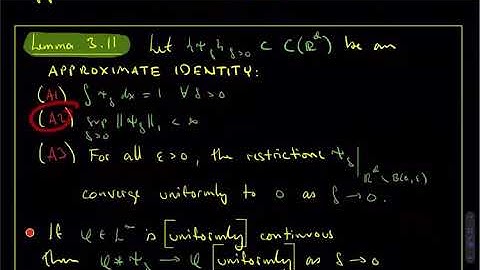 Lemma 3.11 Let {Ψ_δ}_{δ>0} ⊂ C(ℝ^d) be an
APPROXIMATE IDENTITY:
(A1) ∫ Ψ_δ dx = 1 ∀ δ>0
(A2) sup_{δ>0} ‖Ψ_δ‖_1 < ∞
(A3) For all ε>0, the restrictions Ψ_δ|_{ℝ^d \ B(0,ε)}
converge uniformly to 0 as δ → 0.
If φ ∈ L^∞ is [uniformly] continuous
Then φ * Ψ_δ → φ [uniformly] as δ → 0